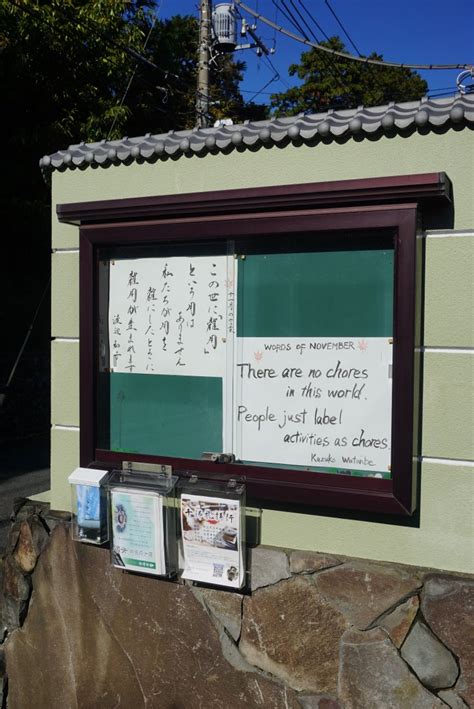 この世に「雑用」
という用は
ありません
私たちが用を
雑にしたときに
雑用が生まれます
渡辺 和子
WORDS OF NOVEMBER
There are no chores
in this world.
People just label
activities as chores.
Kazuko Watanbe